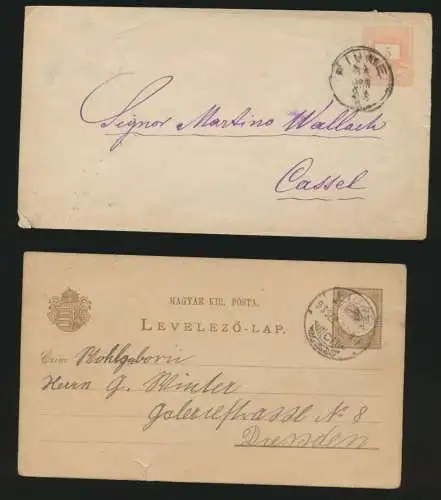 5
FIUME
Signor Martino Wallach
Cassel
MAGYAR KIR. POSTA.
LEVELEZŐ-LAP.
Czim
Herrn G. Winter
No 8
Dresden